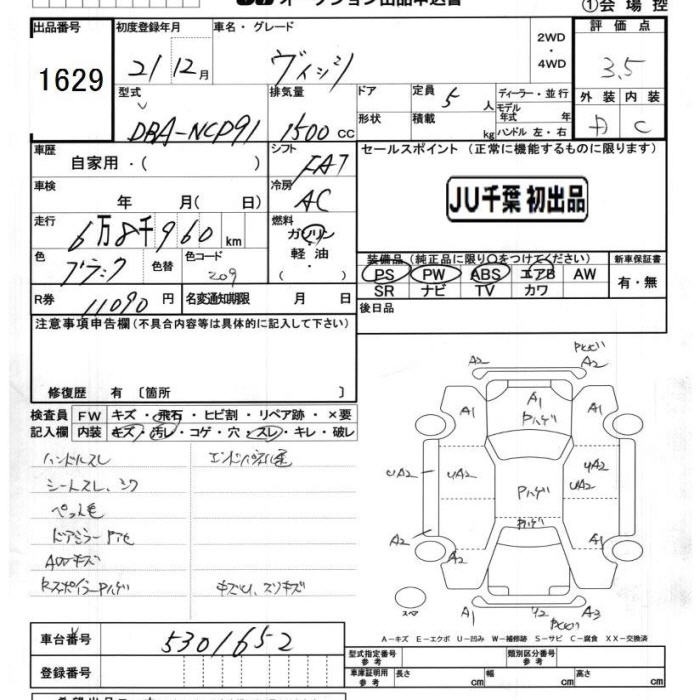 オークション出品申込書
①会場控
出品番号
1629
初度登録年月
21年12月
車名・グレード
ヴィッツ
2WD
・
4WD
評価点
3.5
外装 内装
D C
型式
DBA-NCP91
排気量
1500 CC
ドア
定員
5人
形状
積載
kg
ディーラー・並行
モデル年式 年
ハンドル 左・右
車歴
自家用・( )
シフト
FAT
セールスポイント (正常に機能するものに限ります)
JU千葉 初出品
車検
年 月( 日)
冷房
AC
走行
6万8千960 km
燃料
ガソリン
軽油
・
色
ブラック
色替
色コード
209
装備品 (純正品に限り○をつけてください)
PS PW ABS エアB AW
SR ナビ TV カワ
新車保証書
有・無
R券
11090円
名変通知期限 月 日
後日品
注意事項申告欄 (不具合内容等は具体的に記入して下さい)
修復歴 有 〔箇所 〕
検査員記入欄
FW キズ・飛石・ヒビ割・リペア跡・×要
内装 キズ・汚レ・コゲ・穴・スレ・キレ・破レ
ハンドルスレ
シートスレ、シワ
ペット毛
ドアミラー
AOOキズ
RスポイラーPハゲ
A2 A2
A1 A1 A1
Pハゲ
UA2 UA2 UA2
UA2
Pハゲ
Pハゲ
A2 A2 A1
スペア
A1 Y2 A3
A－キズ E－エクボ U－凹み W－補修跡 S－サビ C－腐食 XX－交換済
車台番号
5301652
登録番号
型式指定番号
参考
類別区分番号
参考
車庫証明用
参考
長さ cm
幅 cm
高さ cm